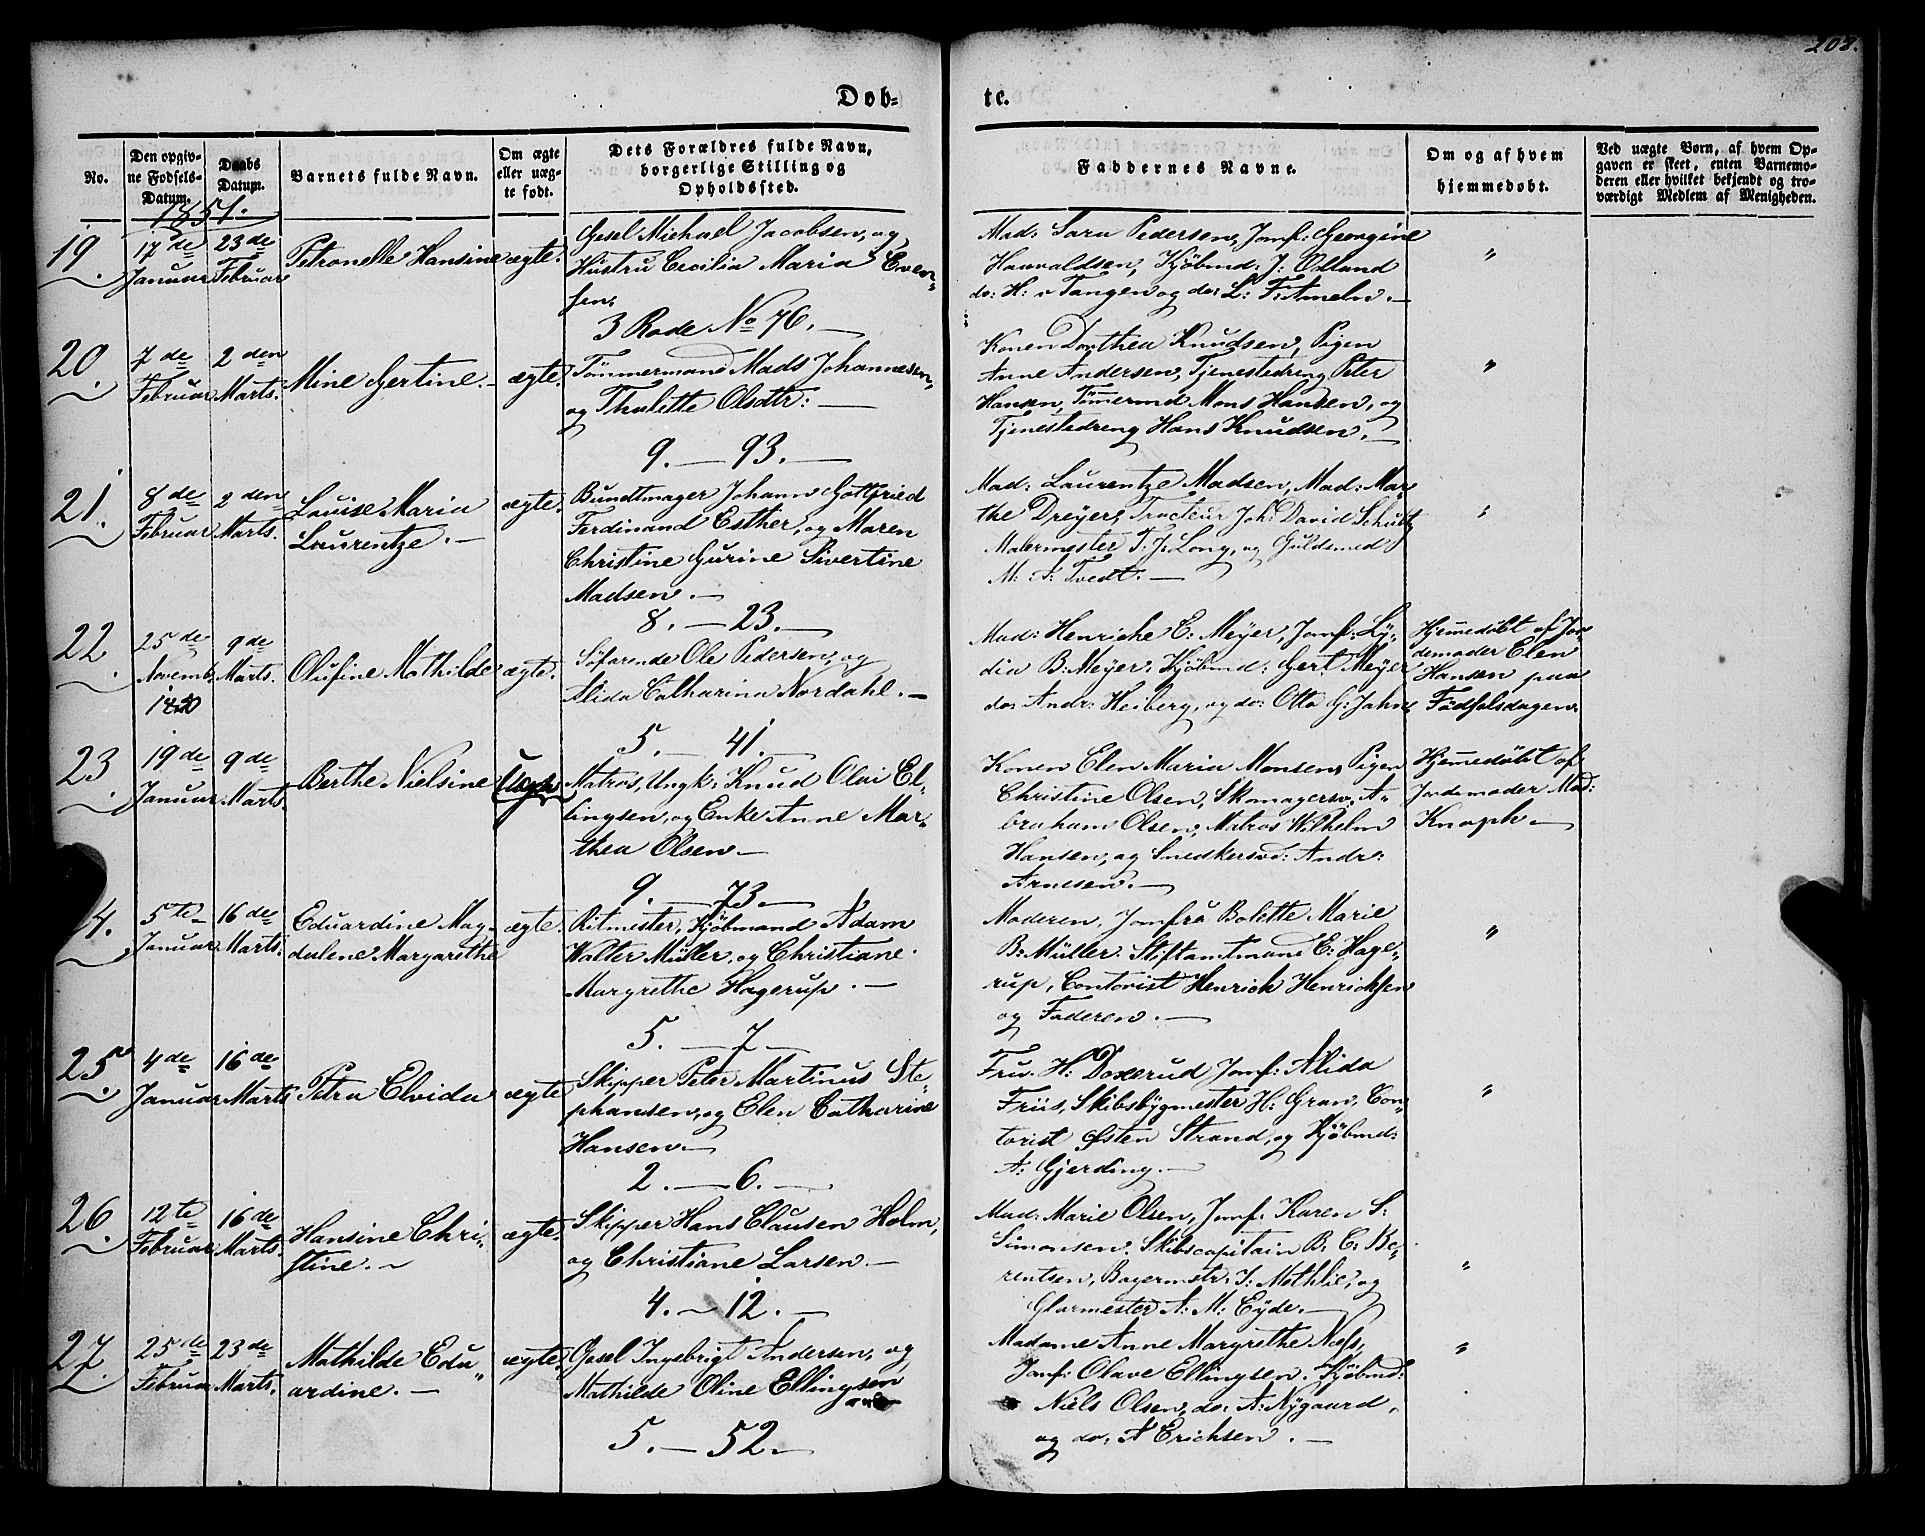 208.
Døb-
te.
No.
Den opgiv-
ne Fødsels-
Datum.
Daabs
Datum.
Barnets fulde Navn.
Om ægte
eller uæg-
te født.
Dets Forældres fulde Navn,
borgerlige Stilling og
Opholdssted.
Faddernes Navne.
Om og af hvem
hjemmedøbt.
Ved uægte Børn, af hvem Op-
gaven er skeet, enten Barnemo-
deren eller hvilket bekjendt og tro-
værdigt Medlem af Menigheden.
1851.
19.
17de
Januar
23de
Februar
Petronelle Hansine
ægte.
Gesel Michael Jacobsen, og
Hustru Cecilia Maria Even-
sen,
3 Rode No 76.
Mad: Sara Pedersen, Jomf: Georgine
Hauvaldsen, Kjøbmd: J: Odland
do: H: v Tangen og do: L: F: Ameln.
"
20.
7de
Februar
2den
Marts.
Mine Gertine.
ægte.
Tømmermand Mads Johannesen,
og Thalette Olsdtr:
9. — 93.
Konen Dorthea Knudsen, Pigen
Anne Andersen, Tjenestedreng Peter
Hansen, Tømermd Mons Hansen, og
Tjenestedreng Hans Knudsen.
"
21.
8de
Februar
2den
Marts.
Louise Maria
Laurentze.
ægte.
Bundtmager Johann Gottfried
Ferdinand Esther, og Maren
Christine Gurine Sivertine
Madsen.
8. — 23.
Mad: Laurentze Madsen, Mad: Mar-
the Dreyer, Tracteur Joh: David Schultz
Malermester T. J. Long, og Guldsmed
M: A: Tvedt.
"
22.
25de
Novemb
1850
9de
Marts.
Olufine Mathilde
ægte.
Søfarende Ole Pedersen, og
Alida Catharina Nordahl.
5. — 41.
Mad: Henriche E: Meyer, Jomf: Ly-
dia B: Meyer. Kjøbmd: Gert Meyer
do: Andr: Heiberg, og do: Otto G: Jahn
Hjemedøbt af Jor-
demoder Elen
Hansen paa
Fødselsdagen.
23.
19de
Januar
9de
Marts.
Berthe Nielsine
Uægte
Matros, Ungk: Knud Olai El-
lingsen, og Enke Anne Mar-
thea Olsen.
9. — 73.
Konen Elen Maria Monsen, Pigen
Christine Olsen, Skomagersv: A-
braham Olsen, Matros Wilhelm
Hansen, og Snedkersvd: Andr:
Arnesen.
Hjemedøbt af
Jordemoder Mad:
Knoph.
4.
5te
Januar
16de
Marts.
Eduardine Mag-
dalene Margarethe
ægte.
Ritmester, Kjøbmand Adam
Walter Müller, og Christiane
Margrethe Hagerup.
5. — 7
Moderen, Jomfru Bolette Marie
B: Müller. Stiftamtmand E: Hage-
rup, Contorist Henrich Henrichsen
og Faderen.
"
25.
4de
Januar
16de
Marts
Petra Elvida
ægte
Skipper Peter Martinus Ste-
phansen, og Elen Catharine
Hansen.
2. — 6.
Fru. H: Doxerud Jomf: Alida
Friis, Skibsbygmester H: Gran, Con-
torist Østen Strand, og Kjøbmd:
A: Gjerding.
"
26.
12te
Februar
16de
Marts.
Hansine Chri-
stine.
ægte.
Skipper Hans Clausen Holm,
og Christiane Larsen.
4. — 12.
Mad: Marie Olsen, Jomf: Karen S:
Simonsen. Skibscapitain B: C: Be-
rentsen, Bagermstr: J: Mothlie, og
Glarmester A: M: Eyde.
"
27.
25de
Februar
23de
Marts.
Mathilde Edu-
ardine.
ægte.
Gesel Ingebrigt Andersen, og
Mathilde Oline Ellingsen
5. — 52.
Madame Anne Margrethe Næss,
Jomf: Olave Ellingsen. Kjøbmd:
Niels Olsen, do: A: Nygaard,
og do: A Erichsen.
"